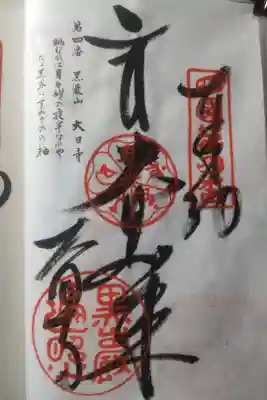 奉納
大日如来
大日寺
黒巌山
第四番 黒巌山 大日寺
眺むれば月白妙の夜半なれや
たゞ黒谷にすみぞめの袖